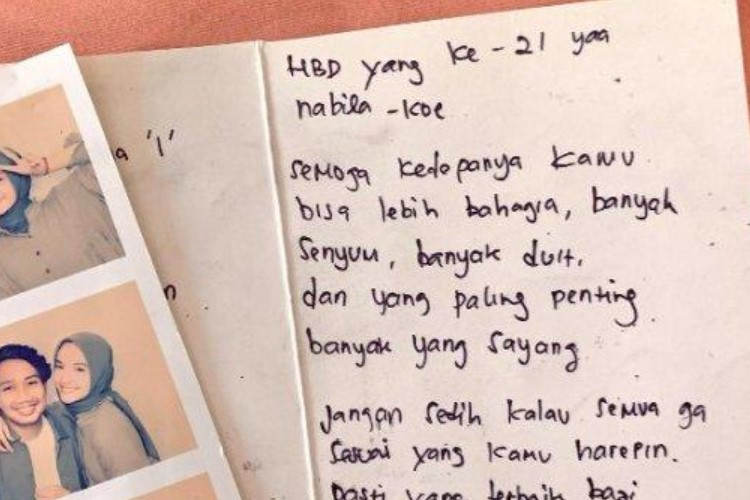 HBD yang ke - 21 yaa
nabila - koe
semoga kedepanya kamu
bisa lebih bahagia, banyak
senyum, banyak duit,
dan yang paling penting
banyak yang sayang
jangan sedih kalau semua ga
sesuai yang kamu harepin.
Pasti yang terbaik bagi
a '1'
n